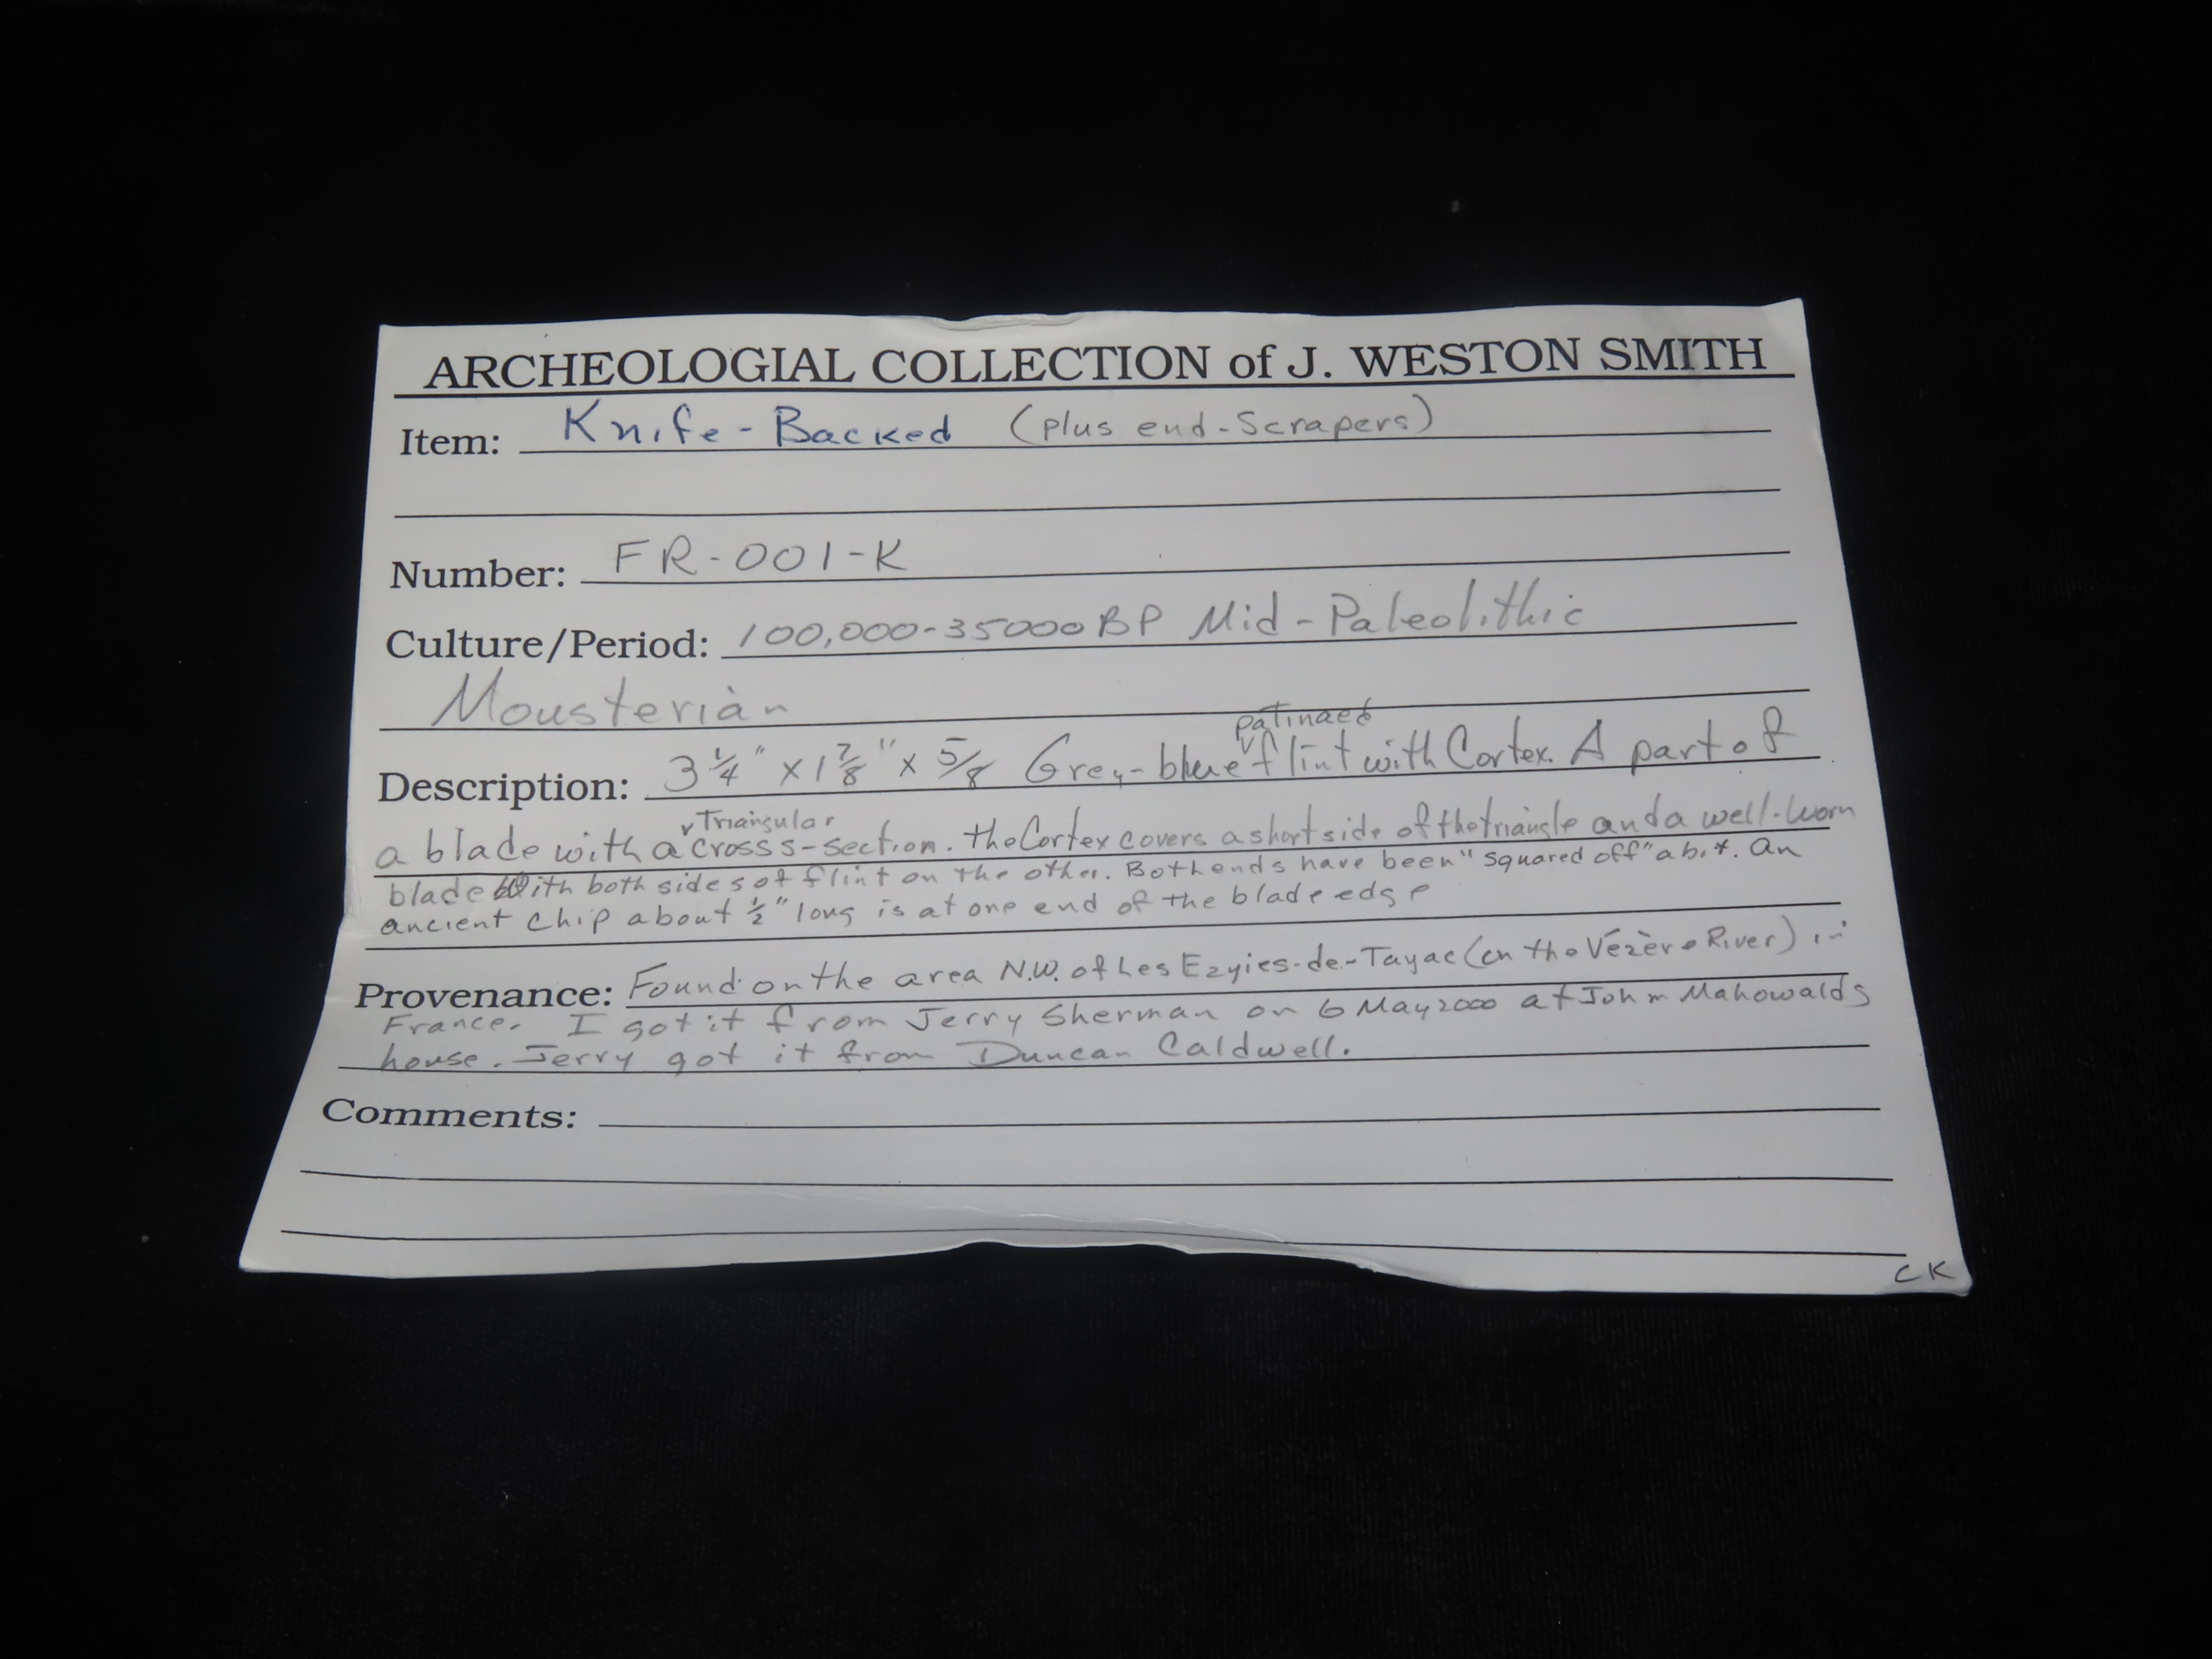 ARCHEOLOGIAL COLLECTION of J. WESTON SMITH
Item: Knife-Backed (plus end-Scrapers)
Number: FR-001-K
Culture/Period: 100,000-35000 BP Mid-Paleolithic
Mousterian
patinaed
Description: 3 1/4" x 1 7/8" x 5/8 Grey-blue flint with Cortex. A part of
Triangular
a blade with a cross s-section. the Cortex covers a short side of the triangle and a well-worn
blade with both sides of flint on the other. Both ends have been "squared off" a bit. An
ancient chip about 1/2" long is at one end of the blade edge
Provenance: Found on the area N.W. of Les Ezyies-de-Tayac (on the Vézère River) in
France. I got it from Jerry Sherman on 6 May 2000 at John Mahowalds
house. Jerry got it from Duncan Caldwell.
Comments:
CK